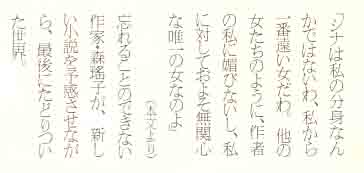 「シナは私の分身なん
かではないわ、私から
一番遠い女だわ。他の
女たちのように、作者
の私に媚びないし、私
に対しておよそ無関心
な唯一の女なのよ」
(本文より)
忘れることのできない
作家・森瑤子が、新し
い小説を予感させなが
ら、最後にたどりつい
た世界。